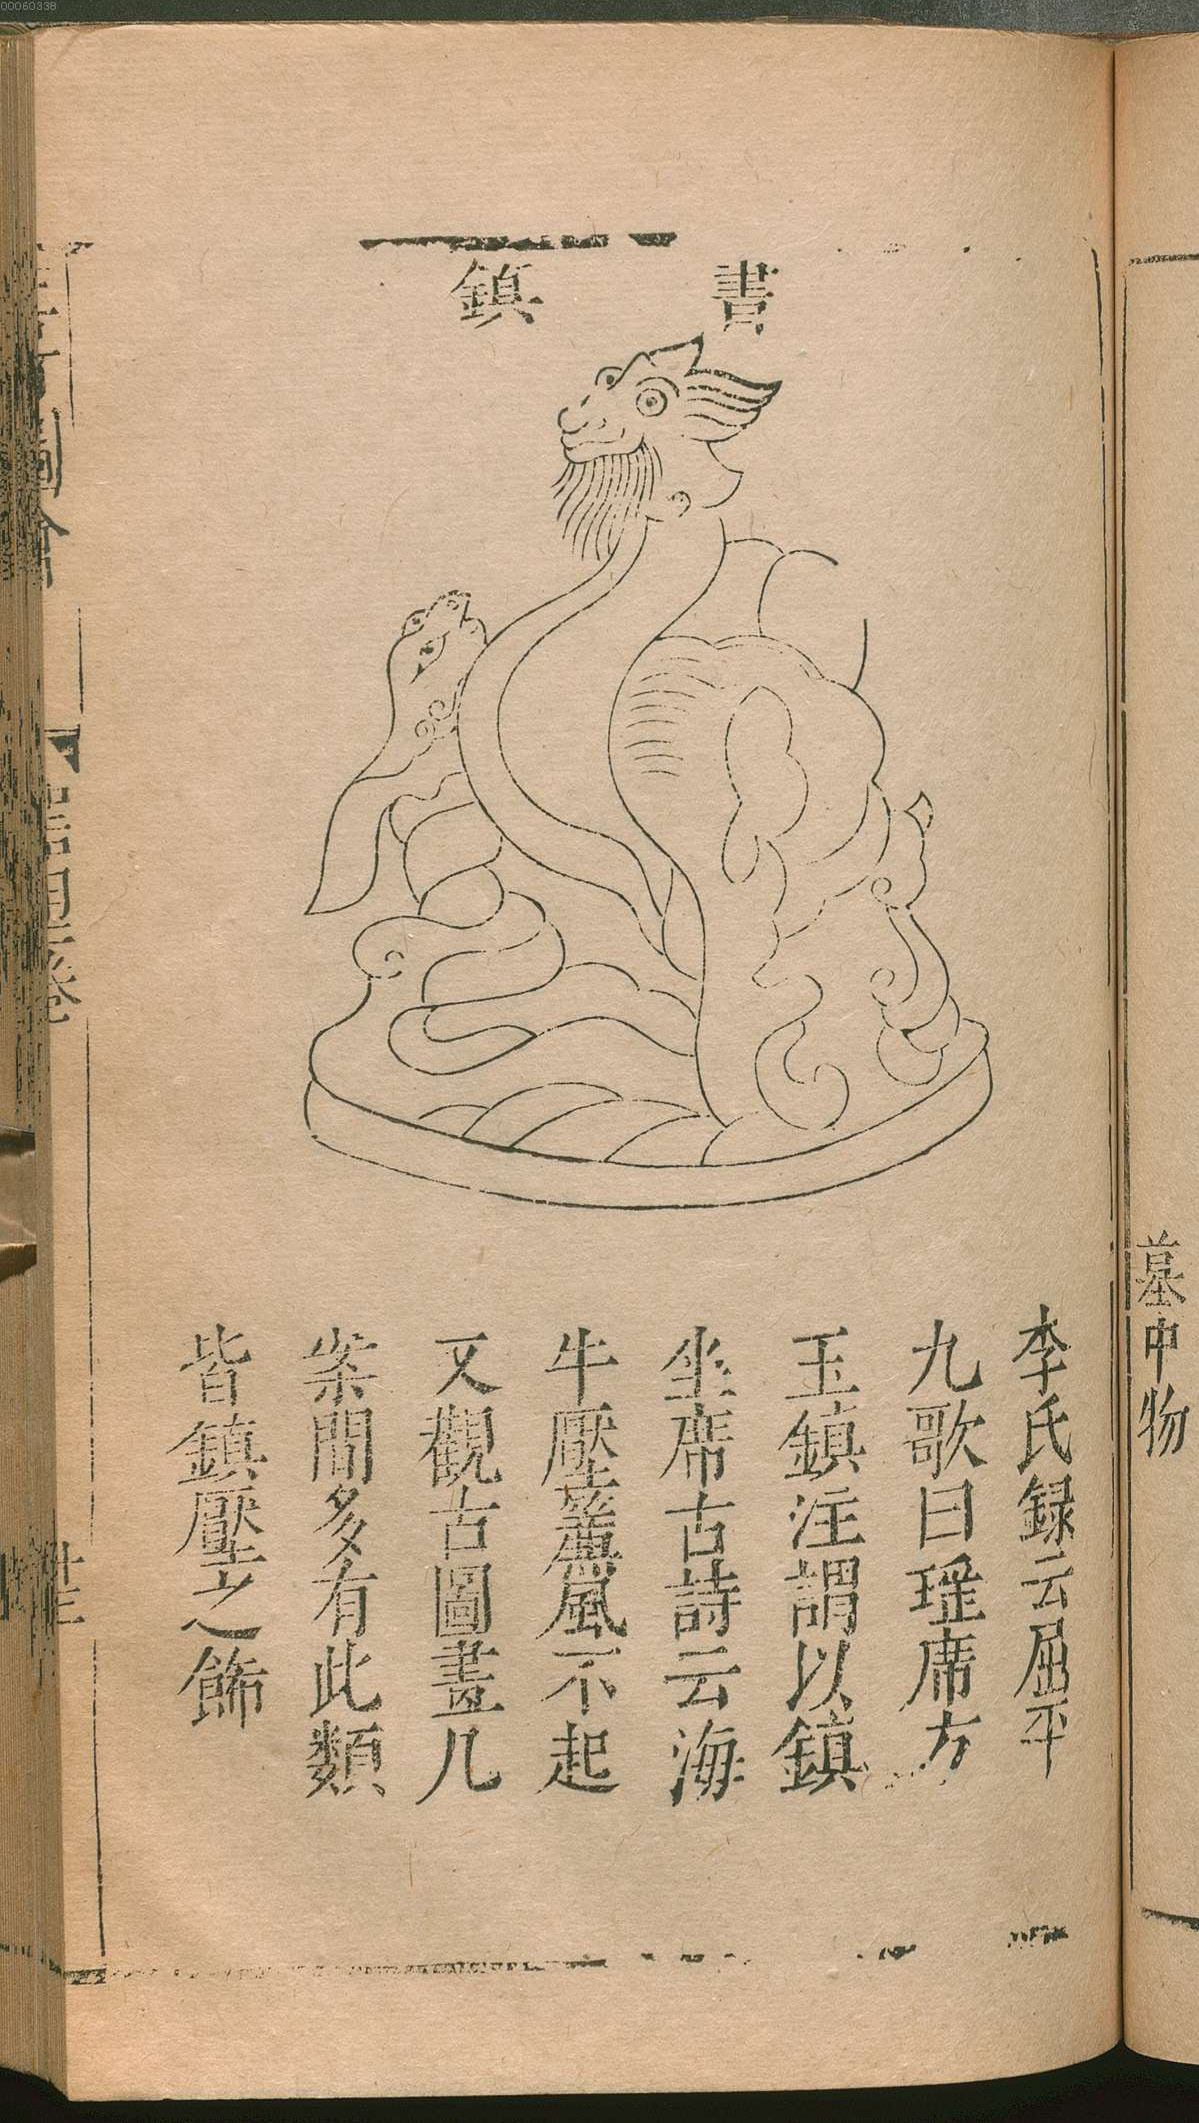 00060338
墓中物
書鎮
李氏録云屈平
九歌曰瑶席方
玉鎮注謂以鎮
坐席古詩云海
牛壓簾風不起
又觀古圖畫几
案間多有此類
皆鎮壓之飾
圖會